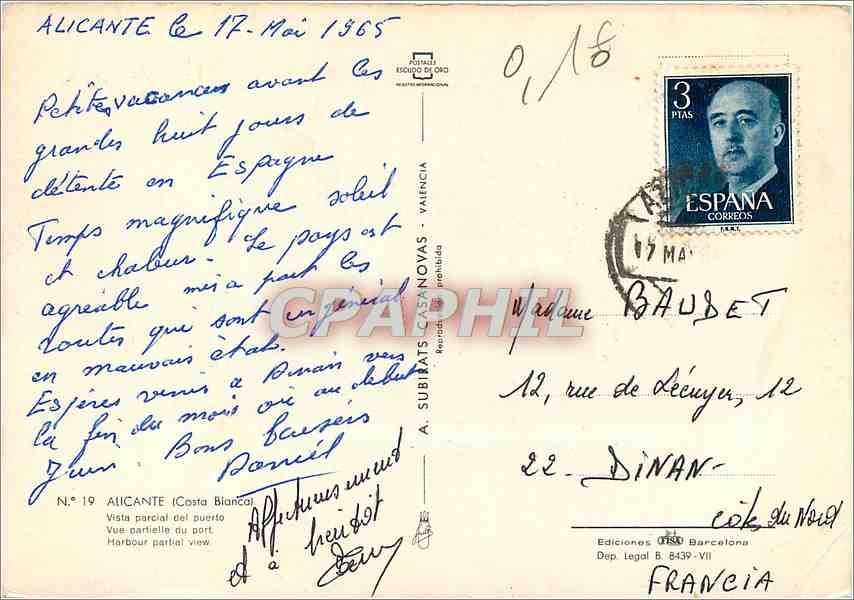 ALICANTE le 17 - Mai 1965
Petites vacances avant les
grandes huit jours de
détente en Espagne
Temps magnifique soleil
et chaleur - Le pays est
agréable mis a part les
routes qui sont en général
en mauvais état.
Espères venir a Dinan vers
la fin du mois ou au debut
Juin. Bons baisers
Daniel
Affectueusement
et à bientôt
POSTALES
ESCUDO DE ORO
REGISTRO INTERNACIONAL
A. SUBIRATS CASANOVAS - VALENCIA
Reproducción prohibida
0,18
3
PTAS
ESPAÑA
CORREOS
F.N.M.T.
17 MA
CPAPHIL
Madame BAUDET
12, rue de Lécuyer, 12
22 - DINAN -
Côtes du Nord
FRANCIA
N.º 19 ALICANTE (Costa Blanca)
Vista parcial del puerto
Vue partielle du port.
Harbour partial view.
Ediciones FISA Barcelona
Dep. Legal B. 8439 - VII